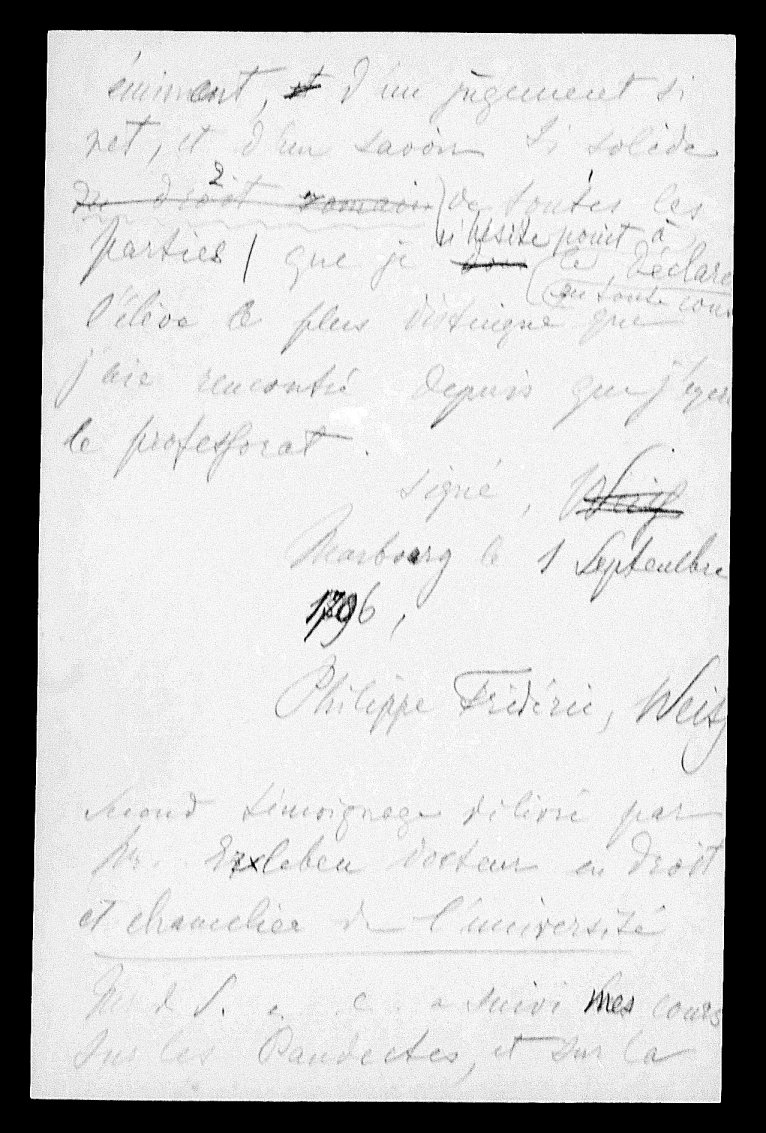 éminent, et d'un jugement si
net, et d'un savoir si solide
du droit romain de toutes les
2
parties que je
n'hésite point à
le déclare
en toute cons
l'élève le plus distingué que
j'aie rencontré depuis que j'exer
le professorat.
signé, Weiss
Marbourg le 1 Septembre
1796,
Philippe Frédéric, Weiss
Second témoignage délivré par
Mr. Erxleben docteur en droit
et chancelier de l'université
Mr d S. a suivi mes cours
sur les Pandectes, et sur la